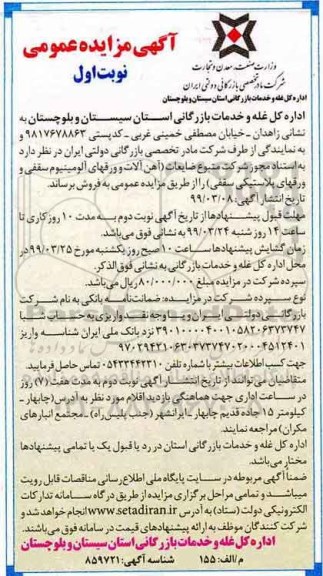 آگهی مزایده عمومی
نوبت اول
وزارت صنعت، معدن و تجارت
شرکت مادر تخصصی بازرگانی دولتی ایران
اداره کل غله و خدمات بازرگانی استان سیستان و بلوچستان
اداره کل غله و خدمات بازرگانی استان سیستان و بلوچستان به
نشانی زاهدان - خیابان مصطفی خمینی غربی - کدپستی ۹۸۱۷۶۷۸۸۶۳
به نمایندگی از طرف شرکت مادر تخصصی بازرگانی دولتی ایران در نظر دارد
به استناد مجوز شرکت متبوع ضایعات (آهن آلات و ورقهای آلومینیوم سقفی و
ورقهای پلاستیکی سقفی) را از طریق مزایده عمومی به فروش برساند.
تاریخ انتشار آگهی: ۹۹/۰۳/۰۸
مهلت قبول پیشنهادها از تاریخ آگهی نوبت دوم به مدت ۱۰ روز کاری تا
ساعت ۱۴ روز شنبه ۹۹/۰۳/۲۴ به نشانی فوق می باشد.
زمان گشایش پیشنهادها ساعت ۱۰ صبح روز یکشنبه مورخ ۹۹/۰۳/۲۵ در
محل اداره کل غله و خدمات بازرگانی به نشانی فوق الذکر.
سپرده شرکت در مزایده مبلغ ۸۰/۰۰۰/۰۰۰ ریال می باشد.
نوع سپرده شرکت در مزایده: ضمانت نامه بانکی به نام شرکت
بازرگانی دولتی ایران و یا وجه نقد واریزی به حساب شبا
نزد بانک ملی ایران شناسه واریز
جهت کسب اطلاعات بیشتر با شماره تلفن ۰۵۴۳۳۴۴۲۳۱۰ تماس حاصل فرمایید.
متقاضیان می توانند از تاریخ انتشار آگهی نوبت دوم به مدت هفت (۷) روز
در ساعات اداری جهت هماهنگی بازدید اقلام مورد نظر به آدرس (چابهار -
کیلومتر ۱۵ جاده قدیم چابهار - ایرانشهر (جنب پلیس راه) - مجتمع انبارهای
مکران) مراجعه نمایند.
اداره کل غله و خدمات بازرگانی استان در رد یا قبول یک یا تمامی پیشنهادها
مختار می باشد.
ضمناً آگهی مربوطه در سایت پایگاه ملی اطلاع رسانی مناقصات قابل رویت
میباشد و تمامی مراحل برگزاری مزایده از طریق درگاه سامانه تدارکات
الکترونیکی دولت (ستاد) به آدرس www.setadiran.ir انجام خواهد شد و
شرکت کنندگان موظف به ارائه پیشنهادهای قیمت در سامانه فوق می باشند.
اداره کل غله و خدمات بازرگانی استان سیستان و بلوچستان
م/الف: ۱۵۵ شناسه آگهی: ۸۵۹۷۲۱